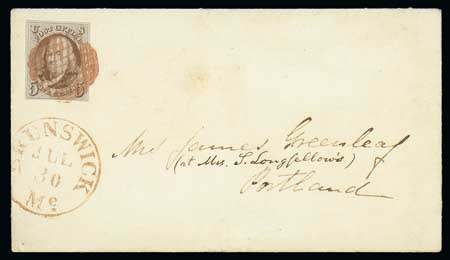 POST OFFICE
5 5
BRUNSWICK
JUL
30
Me
Mrs James Greenleaf
(at Mrs. S. Longfellow's)
Portland